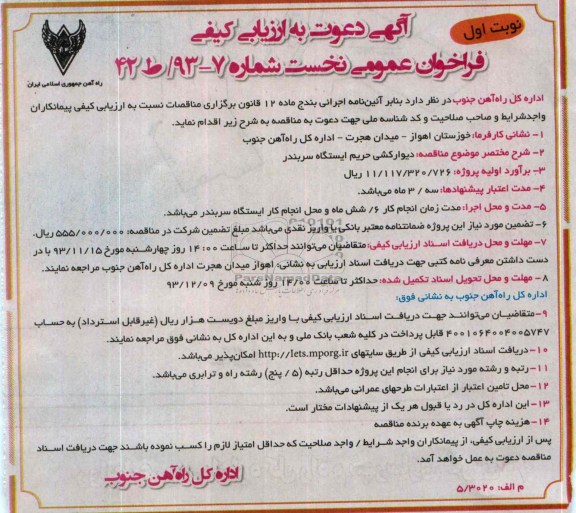 نوبت اول
آگهی دعوت به ارزیابی کیفی
فراخوان عمومی نخست شماره ۷-۹۳/ ط ۴۲
راه آهن جمهوری اسلامی ایران
اداره کل راه‌آهن جنوب در نظر دارد بنابر آئین‌نامه اجرائی بندج ماده ۱۲ قانون برگزاری مناقصات نسبت به ارزیابی کیفی پیمانکاران
واجدشرایط و صاحب صلاحیت و کد شناسه ملی جهت دعوت به مناقصه به شرح زیر اقدام نماید.
۱- نشانی کارفرما: خوزستان اهواز - میدان هجرت - اداره کل راه‌آهن جنوب
۲- شرح مختصر موضوع مناقصه: دیوارکشی حریم ایستگاه سربندر
۳- برآورد اولیه پروژه: ۱۱/۱۱۷/۳۲۰/۷۲۶ ریال
۴- مدت اعتبار پیشنهادها: سه / ۳ ماه می‌باشد.
۵- مدت و محل اجرا: مدت زمان انجام کار ۶/ شش ماه و محل انجام کار ایستگاه سربندر می‌باشد.
۶- تضمین مورد نیاز این پروژه ضمانتنامه معتبر بانکی یا واریز نقدی می‌باشد مبلغ تضمین شرکت در مناقصه: ۵۵۵/۰۰۰/۰۰۰ ریال.
۷- مهلت و محل دریافت اسناد ارزیابی کیفی: متقاضیان می‌توانند حداکثر تا ساعت ۱۴:۰۰ روز چهارشنبه مورخ ۹۳/۱۱/۱۵ با در
دست داشتن معرفی نامه کتبی جهت دریافت اسناد ارزیابی به نشانی: اهواز میدان هجرت اداره کل راه‌آهن جنوب مراجعه نمایند.
۸- مهلت و محل تحویل اسناد تکمیل شده: حداکثر تا ساعت ۱۴/۰۰ روز شنبه مورخ ۹۳/۱۲/۰۹
اداره کل راه‌آهن جنوب به نشانی فوق:
۹- متقاضیان می‌توانند جهت دریافت اسناد ارزیابی کیفی با واریز مبلغ دویست هزار ریال (غیرقابل استرداد) به حساب
۴۰۰۱۰۶۴۰۰۴۰۰۵۷۴۷ قابل پرداخت در کلیه شعب بانک ملی و به این اداره کل به نشانی فوق مراجعه نمایند.
۱۰- دریافت اسناد ارزیابی کیفی از طریق سایتهای http://Iets.mporg.ir امکان‌پذیر می‌باشد.
۱۱- رتبه و رشته مورد نیاز برای انجام این پروژه حداقل رتبه (۵ / پنج) رشته راه و ترابری می‌باشد.
۱۲- محل تامین اعتبار از اعتبارات طرحهای عمرانی می‌باشد.
۱۳- این اداره کل در رد یا قبول هر یک از پیشنهادات مختار است.
۱۴- هزینه چاپ آگهی به عهده برنده مناقصه
پس از ارزیابی کیفی، از پیمانکاران واجد شرایط / واجد صلاحیت که حداقل امتیاز لازم را کسب نموده باشند جهت دریافت اسناد
مناقصه دعوت به عمل خواهد آمد.
اداره کل راه‌آهن جنوب
م الف: ۵/۳۰۲۰